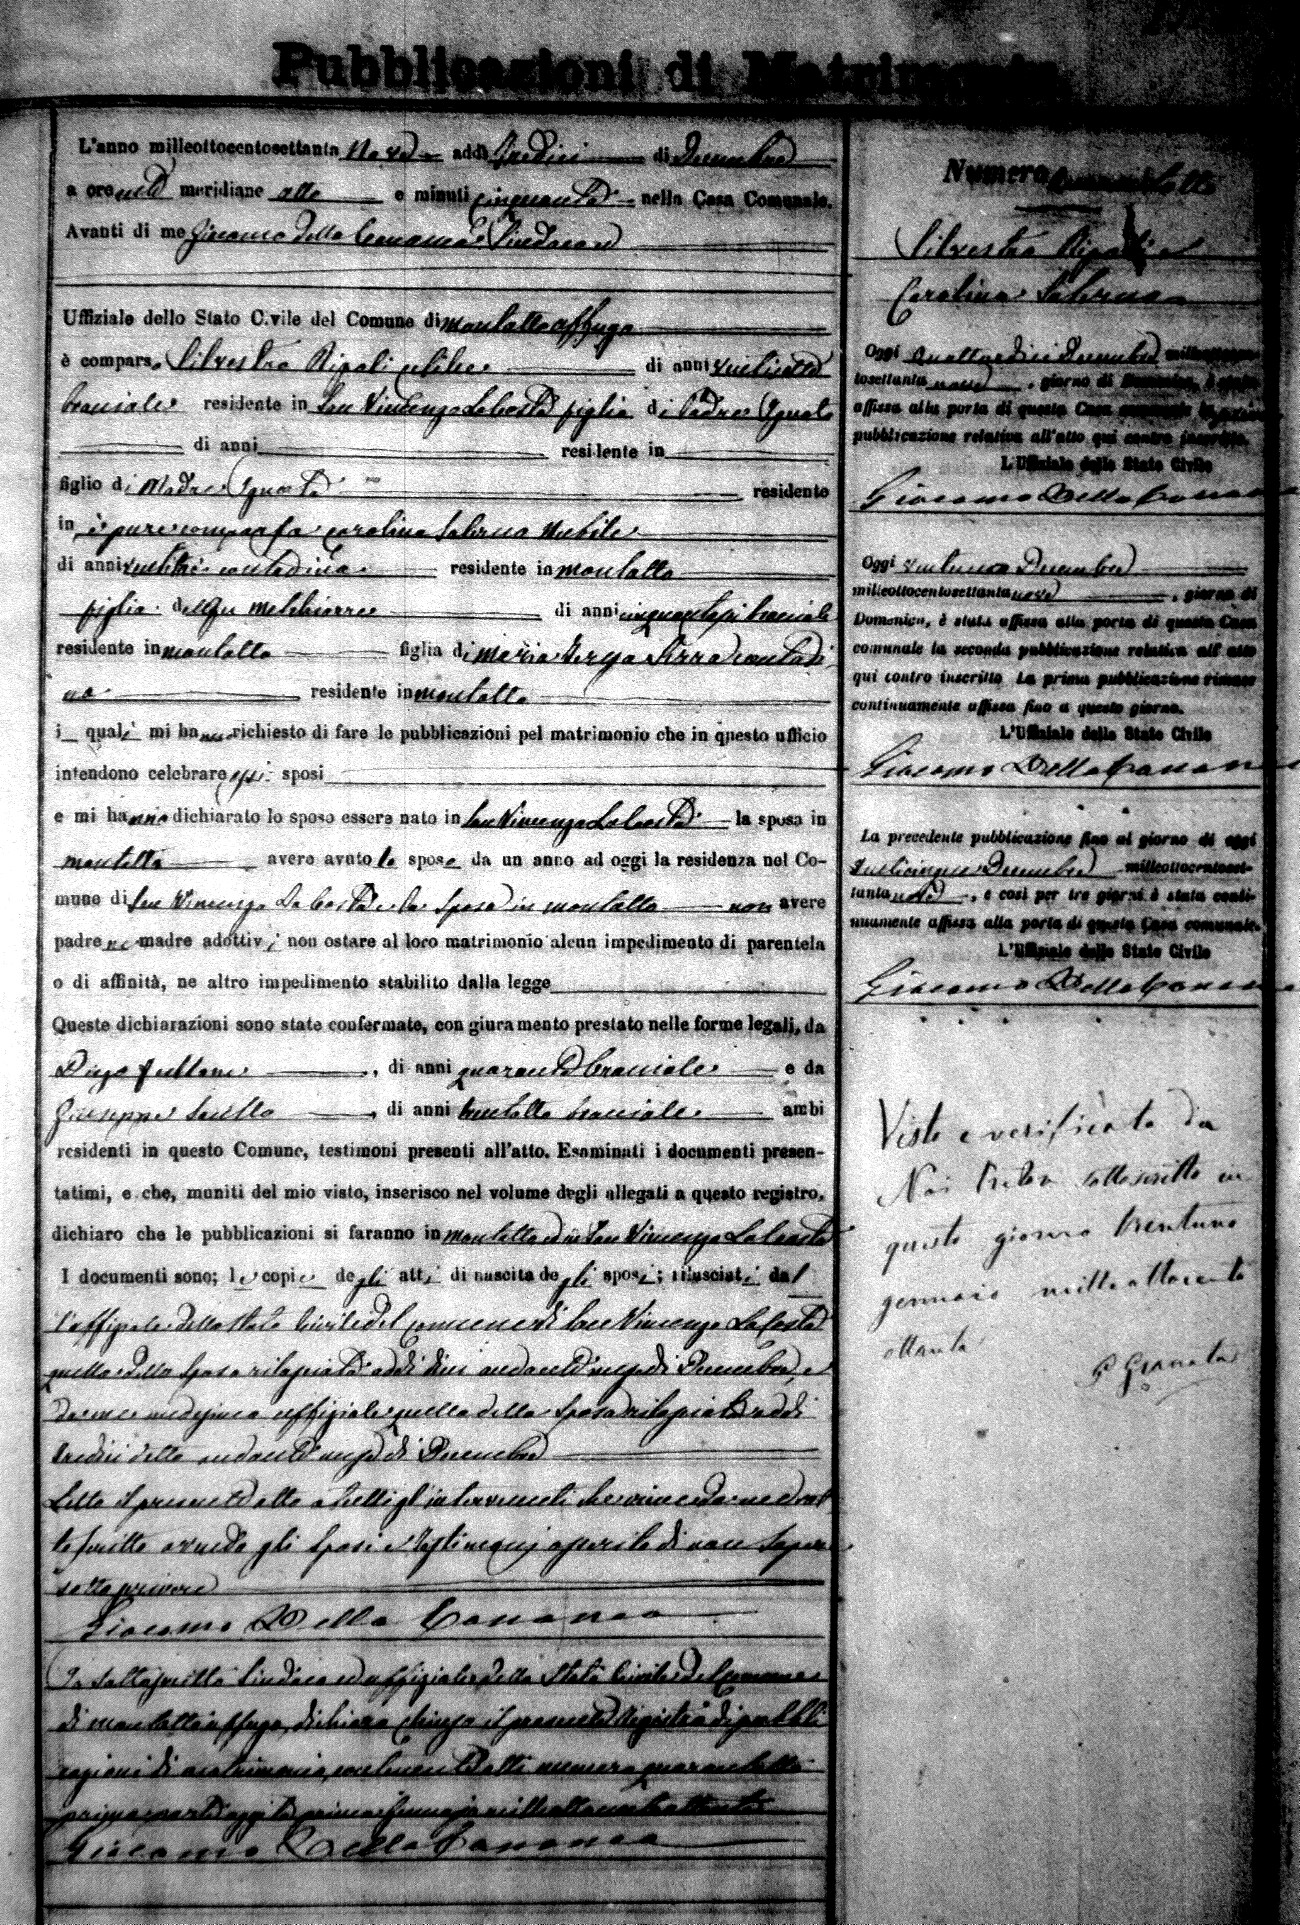 Pubblicazioni di Matrimonio
L'anno milleottocentosettanta Nove addì Tredici di Decembre
a ore anti meridiane otto e minuti cinquanta nella Casa Comunale.
Avanti di me Giacomo della Cananea Sindaco
Uffiziale dello Stato Civile del Comune di Montalto Uffugo
è comparso Silvestro Ripoli celibe di anni ventisette
bracciale residente in San Vincenzo La Costa figlio di Padre Ignoto
di anni residente in
figlio di Madre Ignota residente
in è pure comparsa Carolina Salerno Nubile
di anni ventitre contadina residente in Montalto
figlia del fu Melchiorre di anni cinquantasei bracciale
residente in Montalto figlia di Maria Teresa Sirra contadi
na residente in Montalto
i quali mi hanno richiesto di fare le pubblicazioni pel matrimonio che in questo ufficio
intendono celebrare essi sposi
e mi hanno dichiarato lo sposo essere nato in San Vincenzo La Costa la sposa in
Montalto avere avuto lo sposo da un anno ad oggi la residenza nel Co-
mune di San Vincenzo La Costa e la Sposa in Montalto non avere
padre ne madre adottivi non ostare al loro matrimonio alcun impedimento di parentela
o di affinità, ne altro impedimento stabilito dalla legge
Queste dichiarazioni sono state confermate, con giuramento prestato nelle forme legali, da
di anni quaranta bracciale e da
Giuseppe di anni trentotto bracciale ambi
residenti in questo Comune, testimoni presenti all'atto. Esaminati i documenti presen-
tatimi, e che, muniti del mio visto, inserisco nel volume degli allegati a questo registro,
dichiaro che le pubblicazioni si faranno in Montalto ed in San Vincenzo La Costa
I documenti sono; le copie degli atti di nascita degli sposi; rilasciati dal
l'uffiziale dello Stato Civile del Comune di San Vincenzo La Costa
quella dello Sposo rilasciata addì dieci andante mese di Decembre, e
da me medesimo uffiziale quella della Sposa rilasciata addì
tredici detto andante mese di Decembre
Letto il presente atto a tutti gl'intervenuti che vien da me sot
toscritto avendo gli Sposi e Testimonj asserito di non saper
sottoscrivere
Giacomo Della Cananea
Io sottoscritto Sindaco ed uffiziale dello Stato Civile del Comune
di Montalto Uffugo, dichiaro chiuso il presente Registro di pubbli
cazioni di matrimonio, contenente atti numero quarantotto
prima parte oggi lì primo Gennajo milleottocentottanta
Giacomo Della Cananea
Numero
Silvestro Ripoli e
Carolina Salerno
Oggi quattordici Decembre milleottocen-
tosettantanove, giorno di Domenica, è stata
affissa alla porta di questa Casa comunale la prima
pubblicazione relativa all'atto qui contro inscritto.
L'Uffiziale dello Stato Civile
Giacomo Della Cananea
Oggi ventuno Decembre
milleottocentosettantanove, giorno di
Domenica, è stata affissa alla porta di questa Casa
comunale la seconda pubblicazione relativa all'atto
qui contro inscritto La prima pubblicazione rimase
continuamente affissa fino a questo giorno.
L'Uffiziale dello Stato Civile
Giacomo Della Cananea
La precedente pubblicazione fino al giorno di oggi
venticinque Decembre milleottocentoset-
tantanove, e così per tre giorni è stata conti-
nuamente affissa alla porta di questa Casa comunale.
L'Uffiziale dello Stato Civile
Giacomo Della Cananea
Visto e verificato da
Noi Pretore sottoscritto in
questo giorno trentuno
gennaio milleottocento
ottanta
P Granata